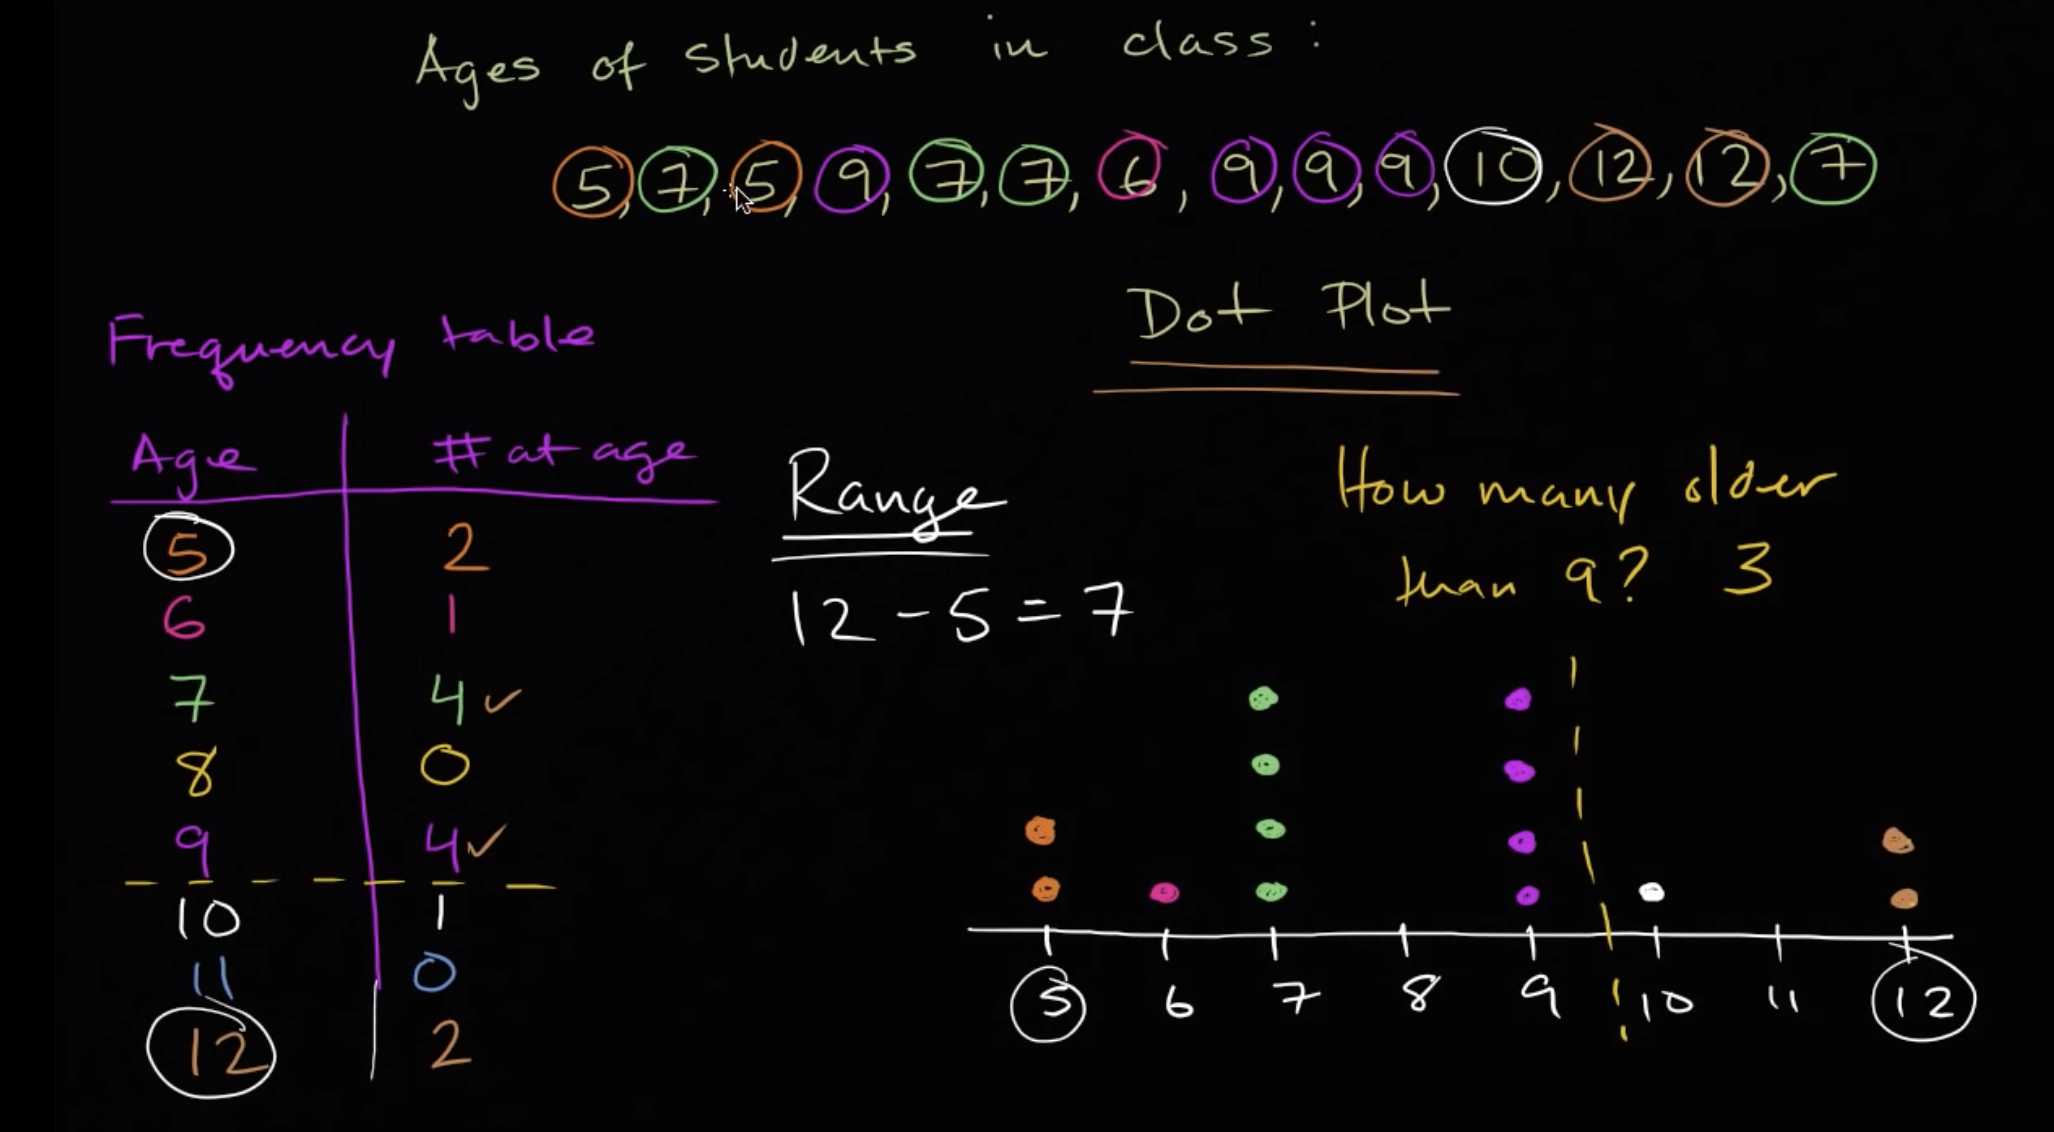 Ages of students in class:
5, 7, 5, 9, 7, 7, 6, 9, 9, 9, 10, 12, 12, 7
Dot Plot
Frequency table
Age # at age
5 2
6 1
7 4 ✓
8 0
9 4 ✓
10 1
11 0
12 2
Range
12 - 5 = 7
How many older
than 9? 3
5 6 7 8 9 10 11 12